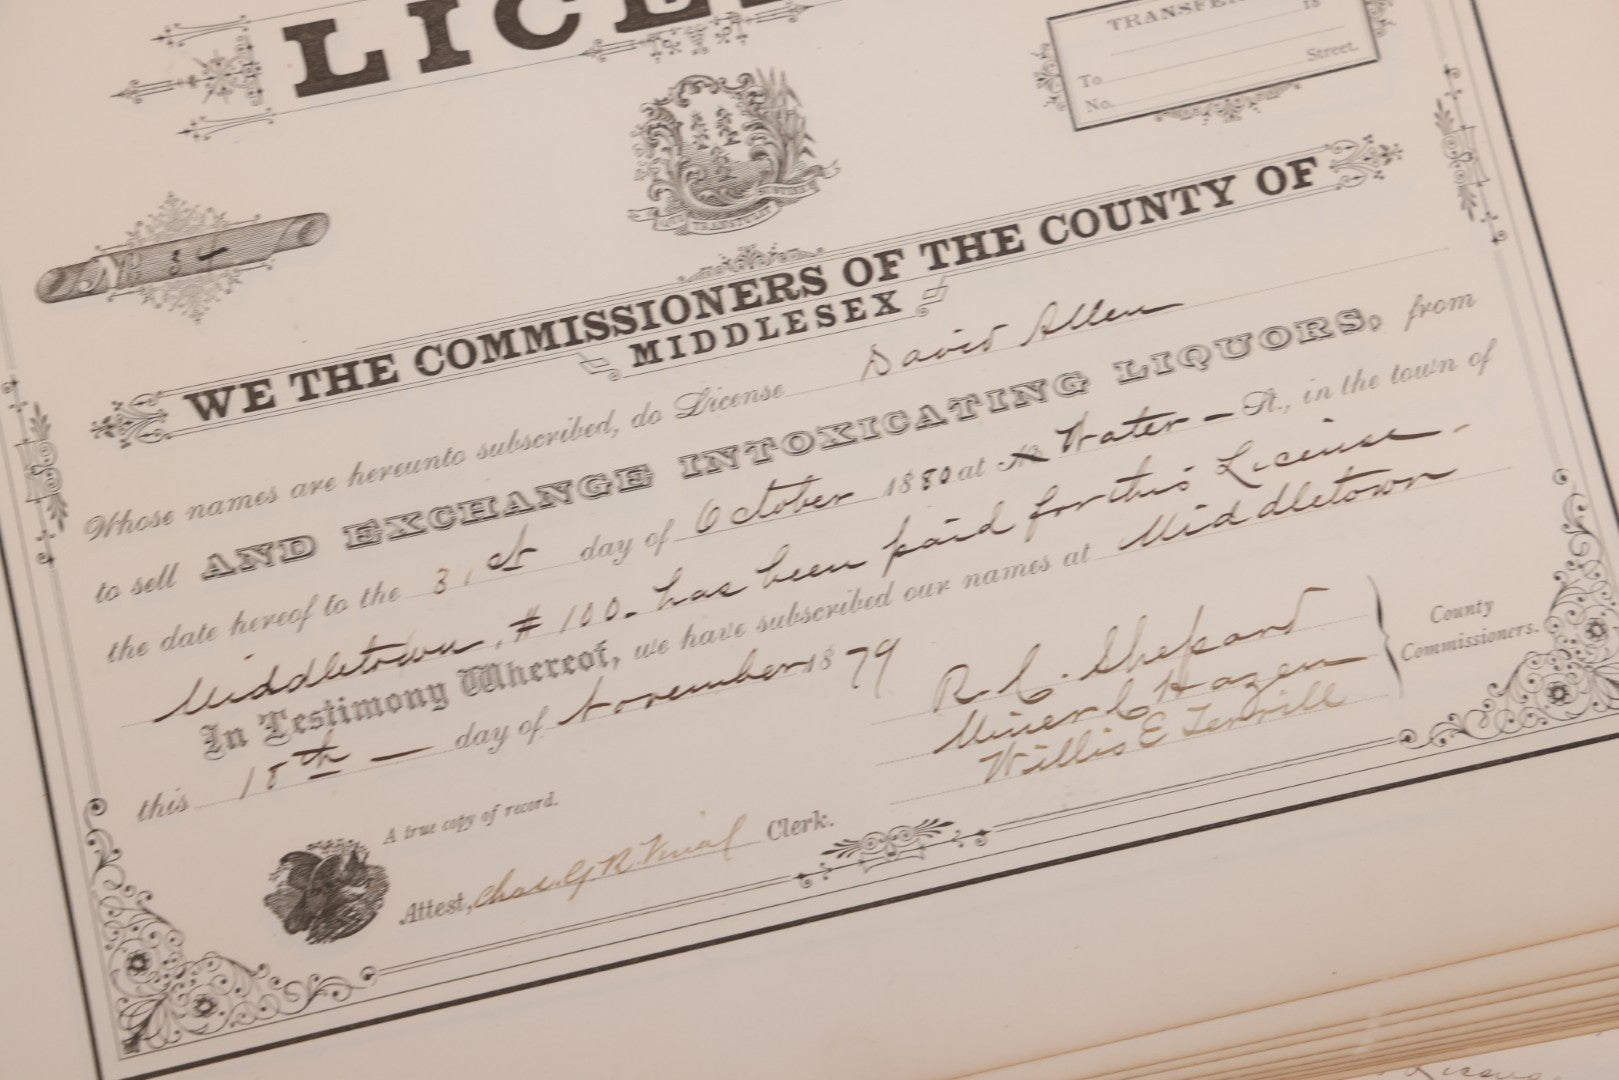 LICE
TRANSFE
18
Street.
To
No.
QUI TRANSTULIT SUSTINET
No 34
WE THE COMMISSIONERS OF THE COUNTY OF
MIDDLESEX
Whose names are hereunto subscribed, do License David Allen
to sell AND EXCHANGE INTOXICATING LIQUORS, from
the date hereof to the 31st day of October 1880 at No Water - St., in the town of
Middletown. # 100. has been paid for this License.
In Testimony Whereof, we have subscribed our names at Middletown
this 18th — day of November 1879
R. C. Shepard
Miner C Hazen
Willis E Terrill
County
Commissioners.
A true copy of record.
Attest, Chas. G. R. Vinal Clerk.